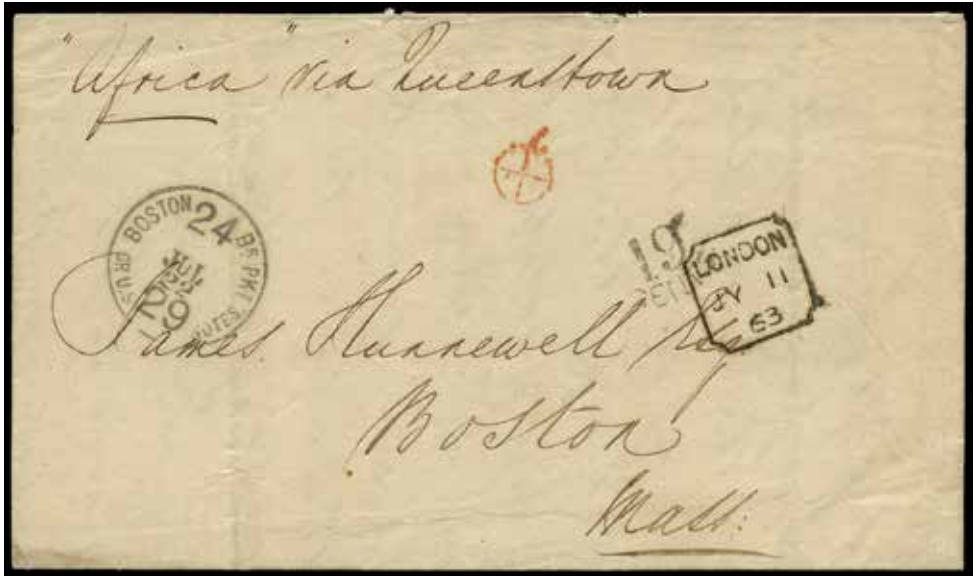 "Africa" via Queenstown
BOSTON 24 BR. PKT.
JUL
22
29
OR U.S. NOTES.
19
CENTS
LONDON
JY 11
63
James Hunnewell Esq
Boston
Mass: